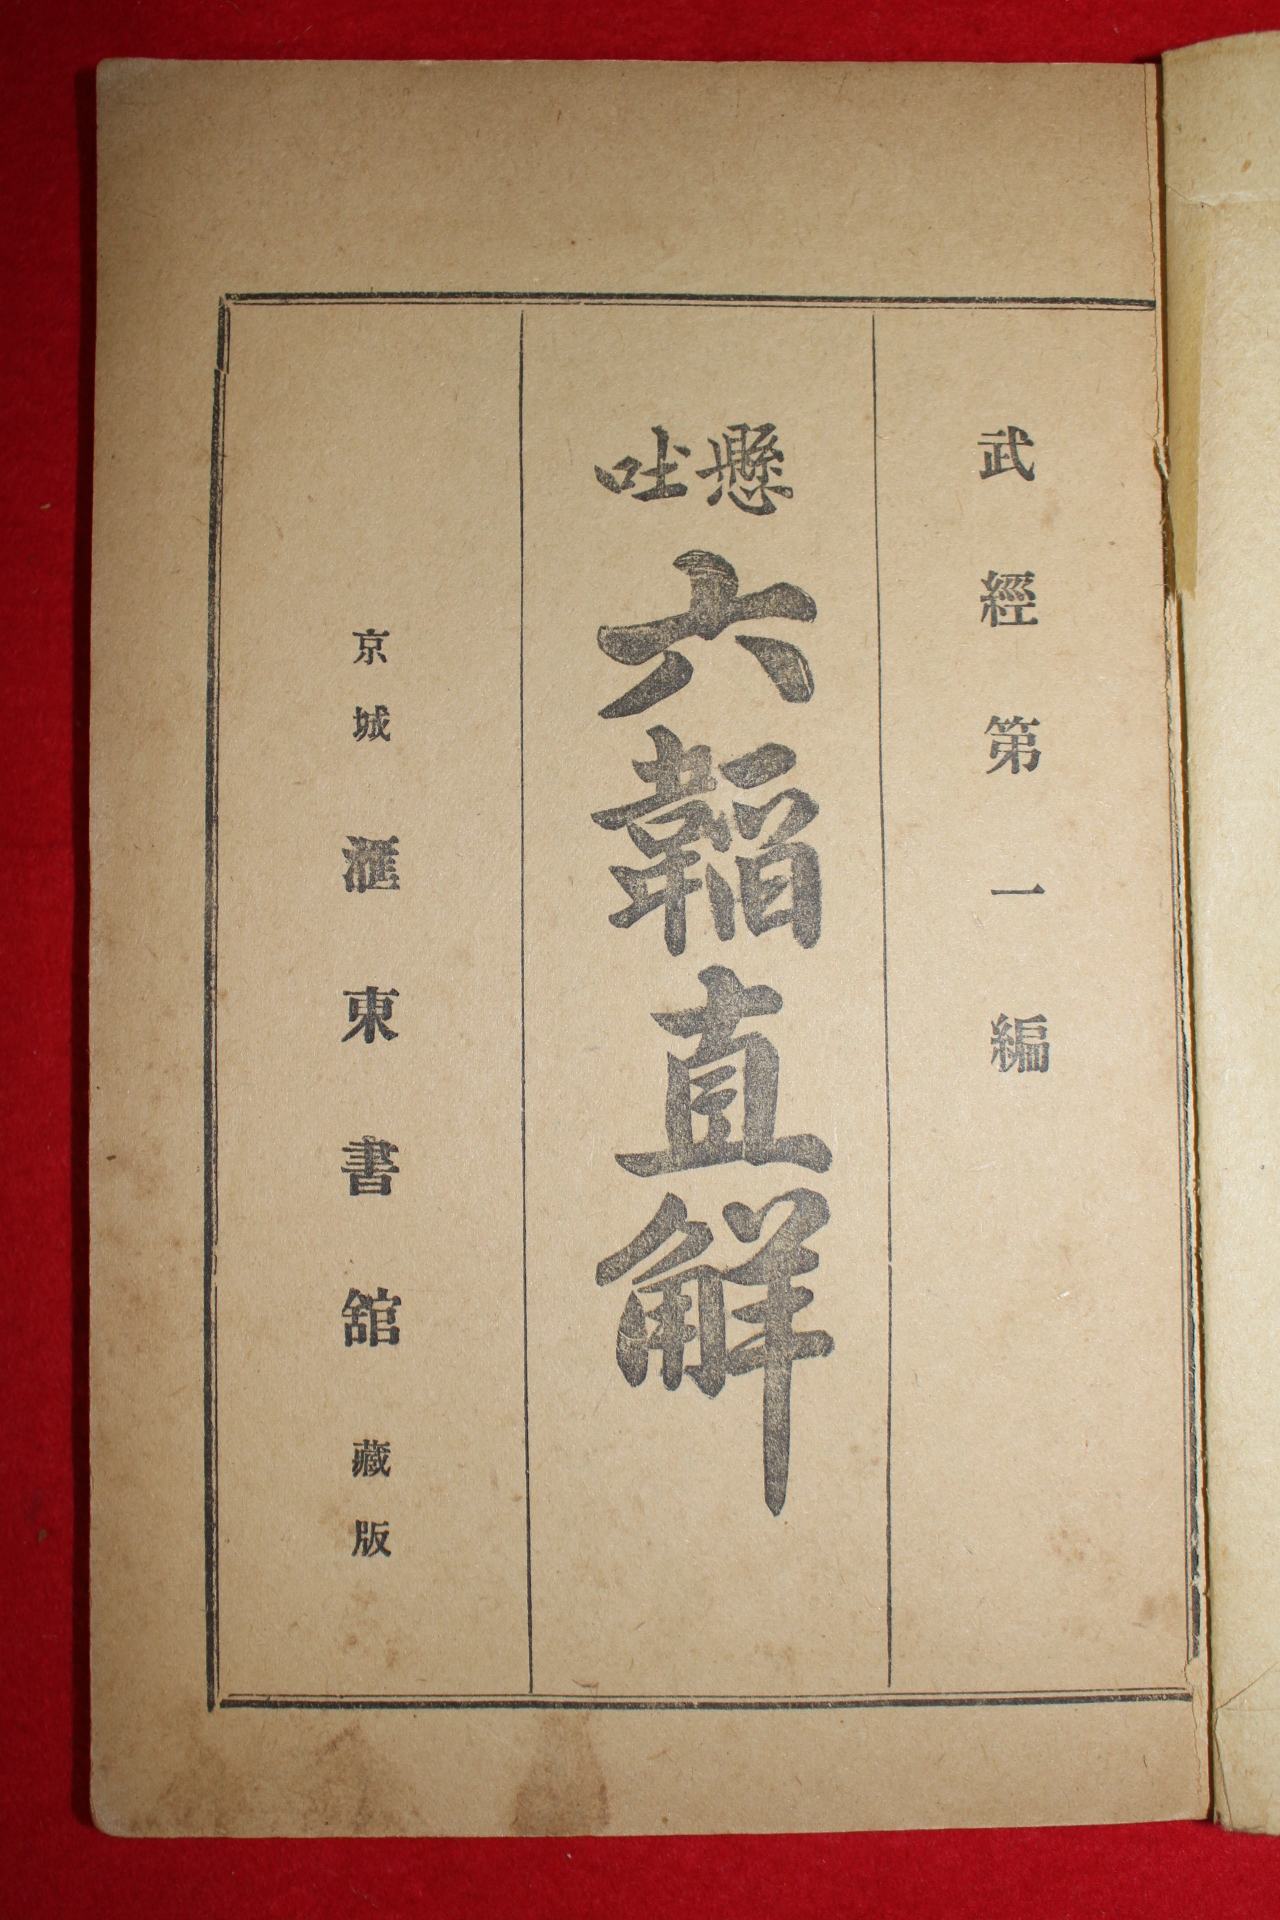 武經第一編
懸吐
六韜直解
京城 滙東書舘 藏版